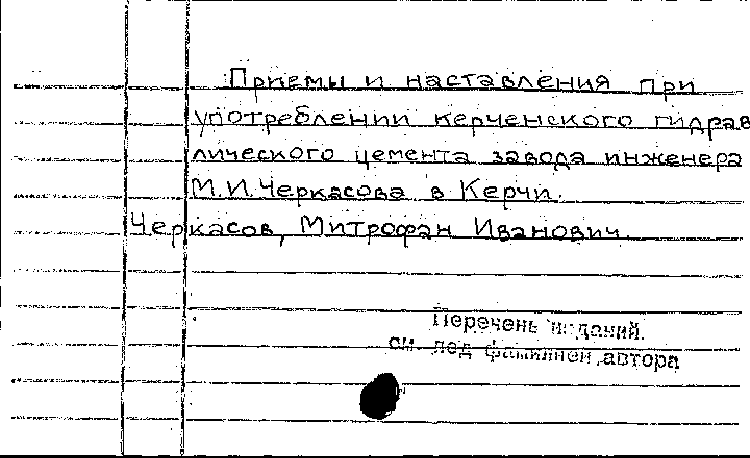 Приемы и наставления при
употреблении керченского гидрав
лического цемента завода инженера
М.И.Черкасова в Керчи.
Черкасов, Митрофан Иванович.
Перечень изданий
см. под фамилией автора